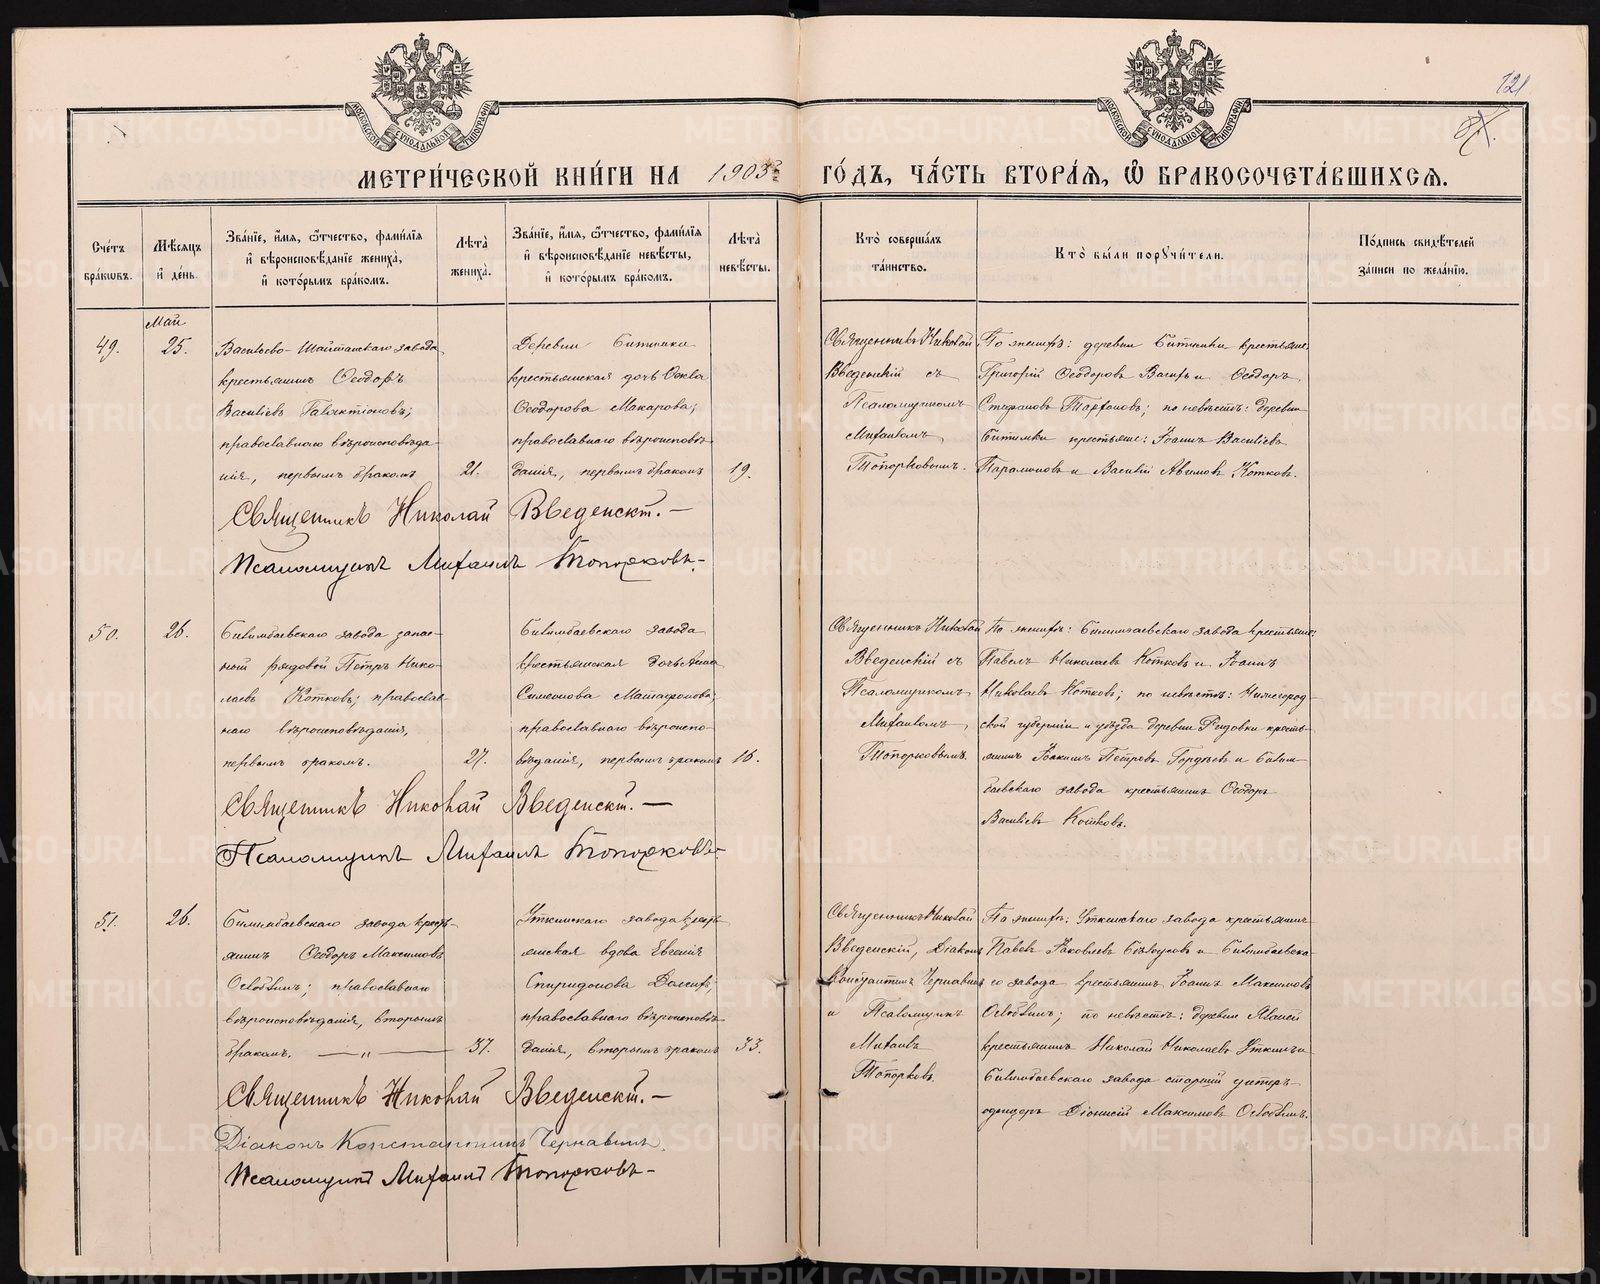 121
МЕТРИЧЕСКОЙ КНИГИ НА 1903 ГОДЪ, ЧАСТЬ ВТОРАЯ, Ѡ БРАКОСОЧЕТАВШИХСЯ.
Счетъ браковъ.
Мѣсяцъ и день.
Званіе, имя, отчество, фамилія и вѣроисповѣданіе жениха, и которымъ бракомъ.
Лѣта жениха.
Званіе, имя, отчество, фамилія и вѣроисповѣданіе невѣсты, и которымъ бракомъ.
Лѣта невѣсты.
Кто совершалъ таинство.
Кто были поручители.
Подпись свидѣтелей записи по желанію.
Май
49.
25.
Васильево-Шайтанскаго завода
крестьянинъ Ѳеодоръ
Васильевъ Галактіоновъ;
православнаго вѣроисповѣда-
нія, первымъ бракомъ
21.
Деревни Битимки
крестьянская дочь Ѳекла
Ѳеодорова Макарова;
православнаго вѣроисповѣ-
данія, первымъ бракомъ
19.
Священникъ Николай
Введенскій съ
Псаломщикомъ
Михаиломъ
Топорковымъ.
По женихѣ: деревни Битимки крестьяне:
Григорій Ѳеодоровъ Вагинъ и Ѳеодоръ
Стефановъ Парфеновъ; по невѣстѣ: деревни
Битимки крестьяне: Іоаннъ Васильевъ
Парамоновъ и Василій Авимовъ Котковъ.
Священникъ Николай Введенскій.-
Псаломщикъ Михаилъ Топорковъ.-
50.
26.
Билимбаевскаго завода запас-
ный рядовой Петръ Нико-
лаевъ Котковъ; православ-
наго вѣроисповѣданія,
первымъ бракомъ.
27.
Билимбаевскаго завода
крестьянская дочь Анна
Симеонова Матафонова;
православнаго вѣроиспо-
вѣданія, первымъ бракомъ
16.
Священникъ Николай
Введенскій съ
Псаломщикомъ
Михаиломъ
Топорковымъ.
По женихѣ: Билимбаевскаго завода крестьяне:
Павелъ Николаевъ Котковъ и Іоаннъ
Николаевъ Котковъ; по невѣстѣ: Нижегород-
ской губерніи и уѣзда деревни крестья-
нинъ Іоакимъ Петровъ Гордѣевъ и Билим-
баевскаго завода крестьянинъ Ѳеодоръ
Васильевъ Котковъ.
Священникъ Николай Введенскій.-
Псаломщикъ Михаилъ Топорковъ.-
51.
26.
Билимбаевскаго завода кресть-
янинъ Ѳеодоръ Максимовъ
православнаго
вѣроисповѣданія, вторымъ
бракомъ. — „ —
37.
Уткинскаго завода кресть-
янская вдова Евгенія
Спиридонова
православнаго вѣроисповѣ-
данія, вторымъ бракомъ
33.
Священникъ Николай
Введенскій, Діаконъ
Константинъ Чернавинъ
и Псаломщикъ
Михаилъ
Топорковъ.
По женихѣ: Уткинскаго завода крестьянинъ
Павелъ Іаковлевъ Бѣлоусовъ и Билимбаевска-
го завода крестьянинъ Іоаннъ Максимовъ
по невѣстѣ: деревни
крестьянинъ Николай Николаевъ Уткинъ и
Билимбаевскаго завода старшій унтеръ-
офицеръ Діонисій Максимовъ
Священникъ Николай Введенскій.-
Діаконъ Константинъ Чернавинъ.
Псаломщикъ Михаилъ Топорковъ.-